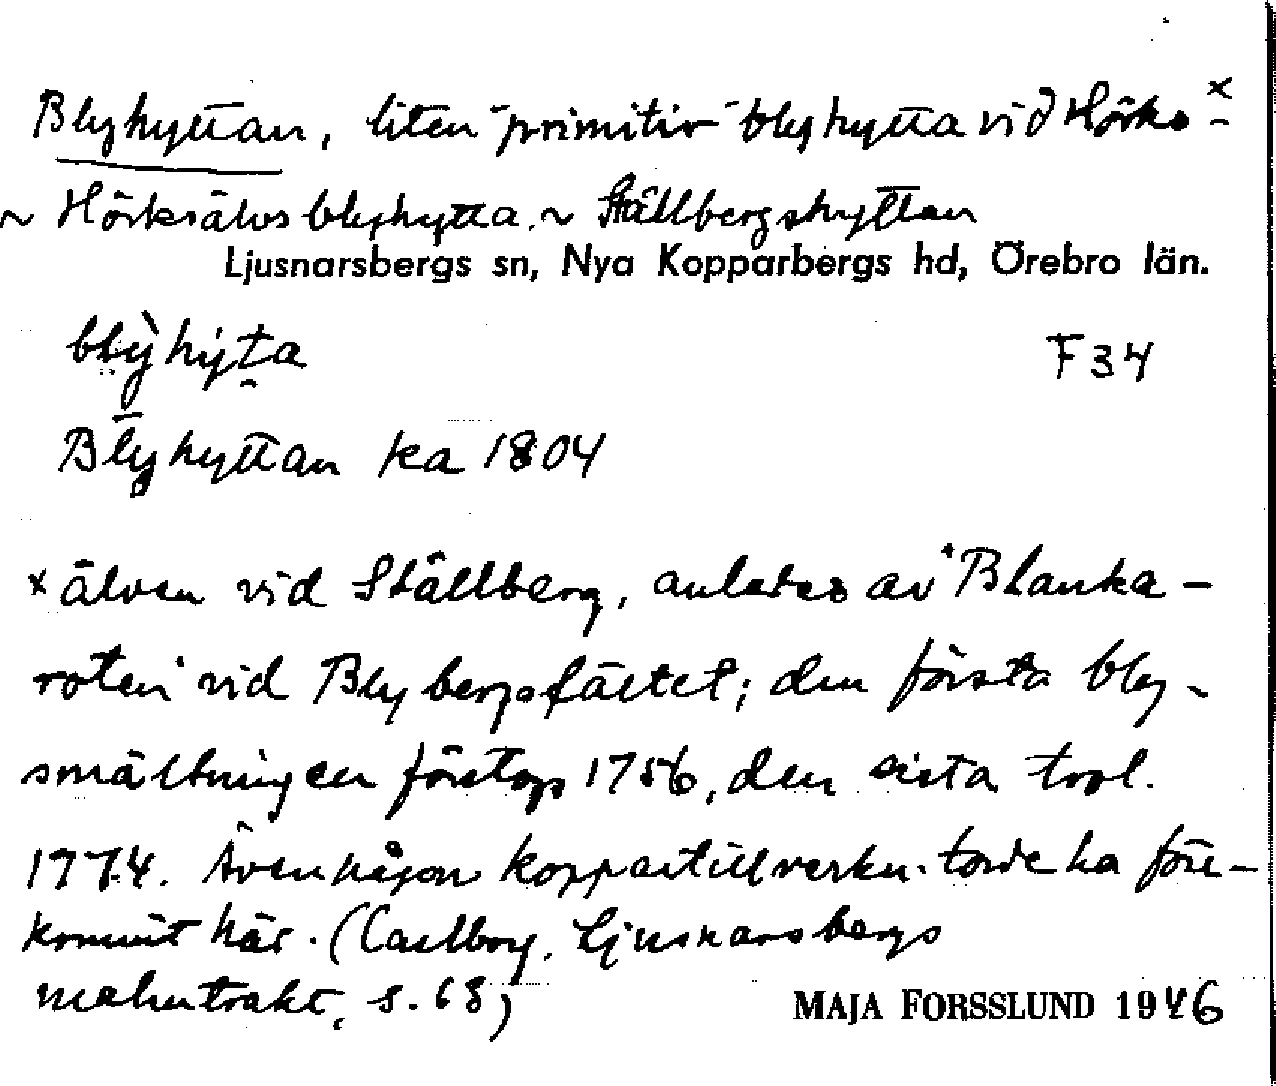 Blyhyttan, liten "primitiv" blyhytta vid Hörks-ˣ
~ Hörksälvs blyhytta. ~ Ställbergshyttan
Ljusnarsbergs sn, Nya Kopparbergs hd, Örebro län.
blỳhyta F34
Blyhyttan ka 1804
x älven vid Ställberg, anlades av "Blanka-
roten" vid Blybergsfältet; den första bly-
smältningen företogs 1756, den sista trol.
1774. Även någon koppartillverkn. torde ha före-
kommit här. (Carlborg, Ljusnarsbergs
malmtrakt, s. 68)
MAJA FORSSLUND 1946